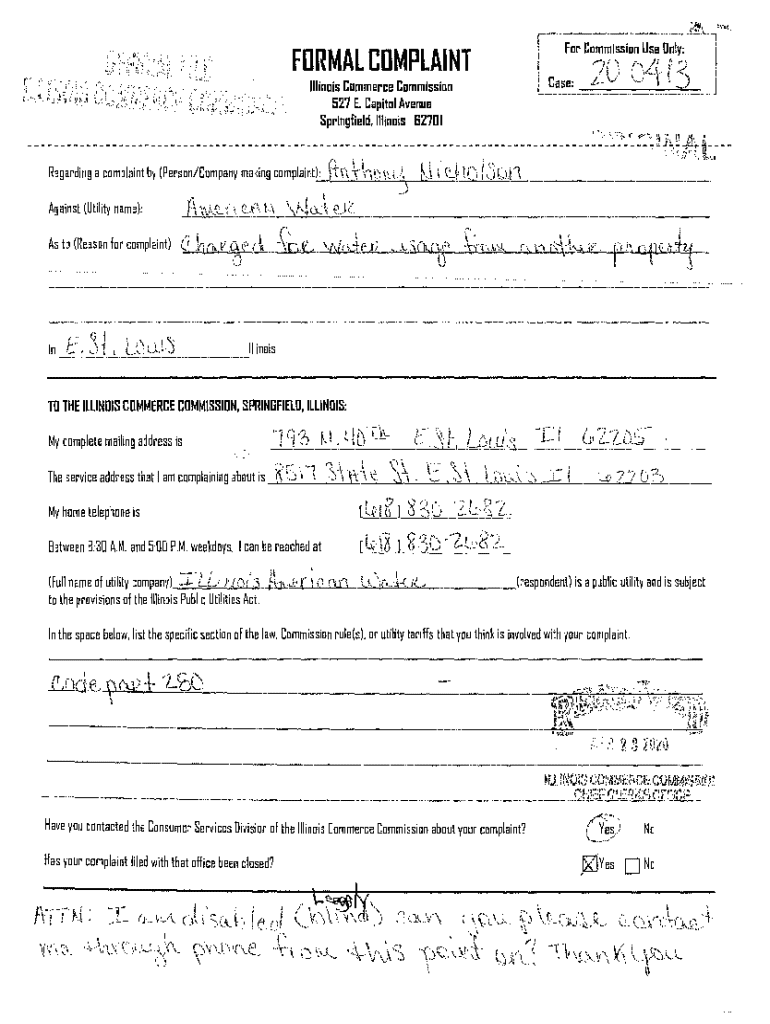 FORMAL COMPLAINT
For Commission Use Only:
Illinois Commerce Commission
Case: 20 0413
527 E. Capitol Avenue
Springfield, Illinois 62701
Regarding a complaint by (Person/Company making complaint): Anthony Nicholson
Against (Utility name): American Water
As to (Reason for complaint) Charged for water usage from another property
In E. St. Louis Illinois
TO THE ILLINOIS COMMERCE COMMISSION, SPRINGFIELD, ILLINOIS:
My complete mailing address is 793 N. 40th E St. Louis Il 62205
The service address that I am complaining about is 8517 State St. E. St Louis Il 62203
My home telephone is (618) 830 2682
Between 8:30 A.M. and 5:00 P.M. weekdays, I can be reached at (618) 830-2682
(Full name of utility company) Illinois American Water (respondent) is a public utility and is subject
to the provisions of the Illinois Public Utilities Act.
In the space below, list the specific section of the law, Commission rule(s), or utility tariffs that you think is involved with your complaint.
Code part 280
2020
ILLINOIS COMMERCE COMMISSION
CHIEF CLERK'S OFFICE
Have you contacted the Consumer Services Division of the Illinois Commerce Commission about your complaint? Yes No
Has your complaint filed with that office been closed? Yes No
Legally
ATTN: I am disabled (blind) can you please contact
me through phone from this point on? Thank you